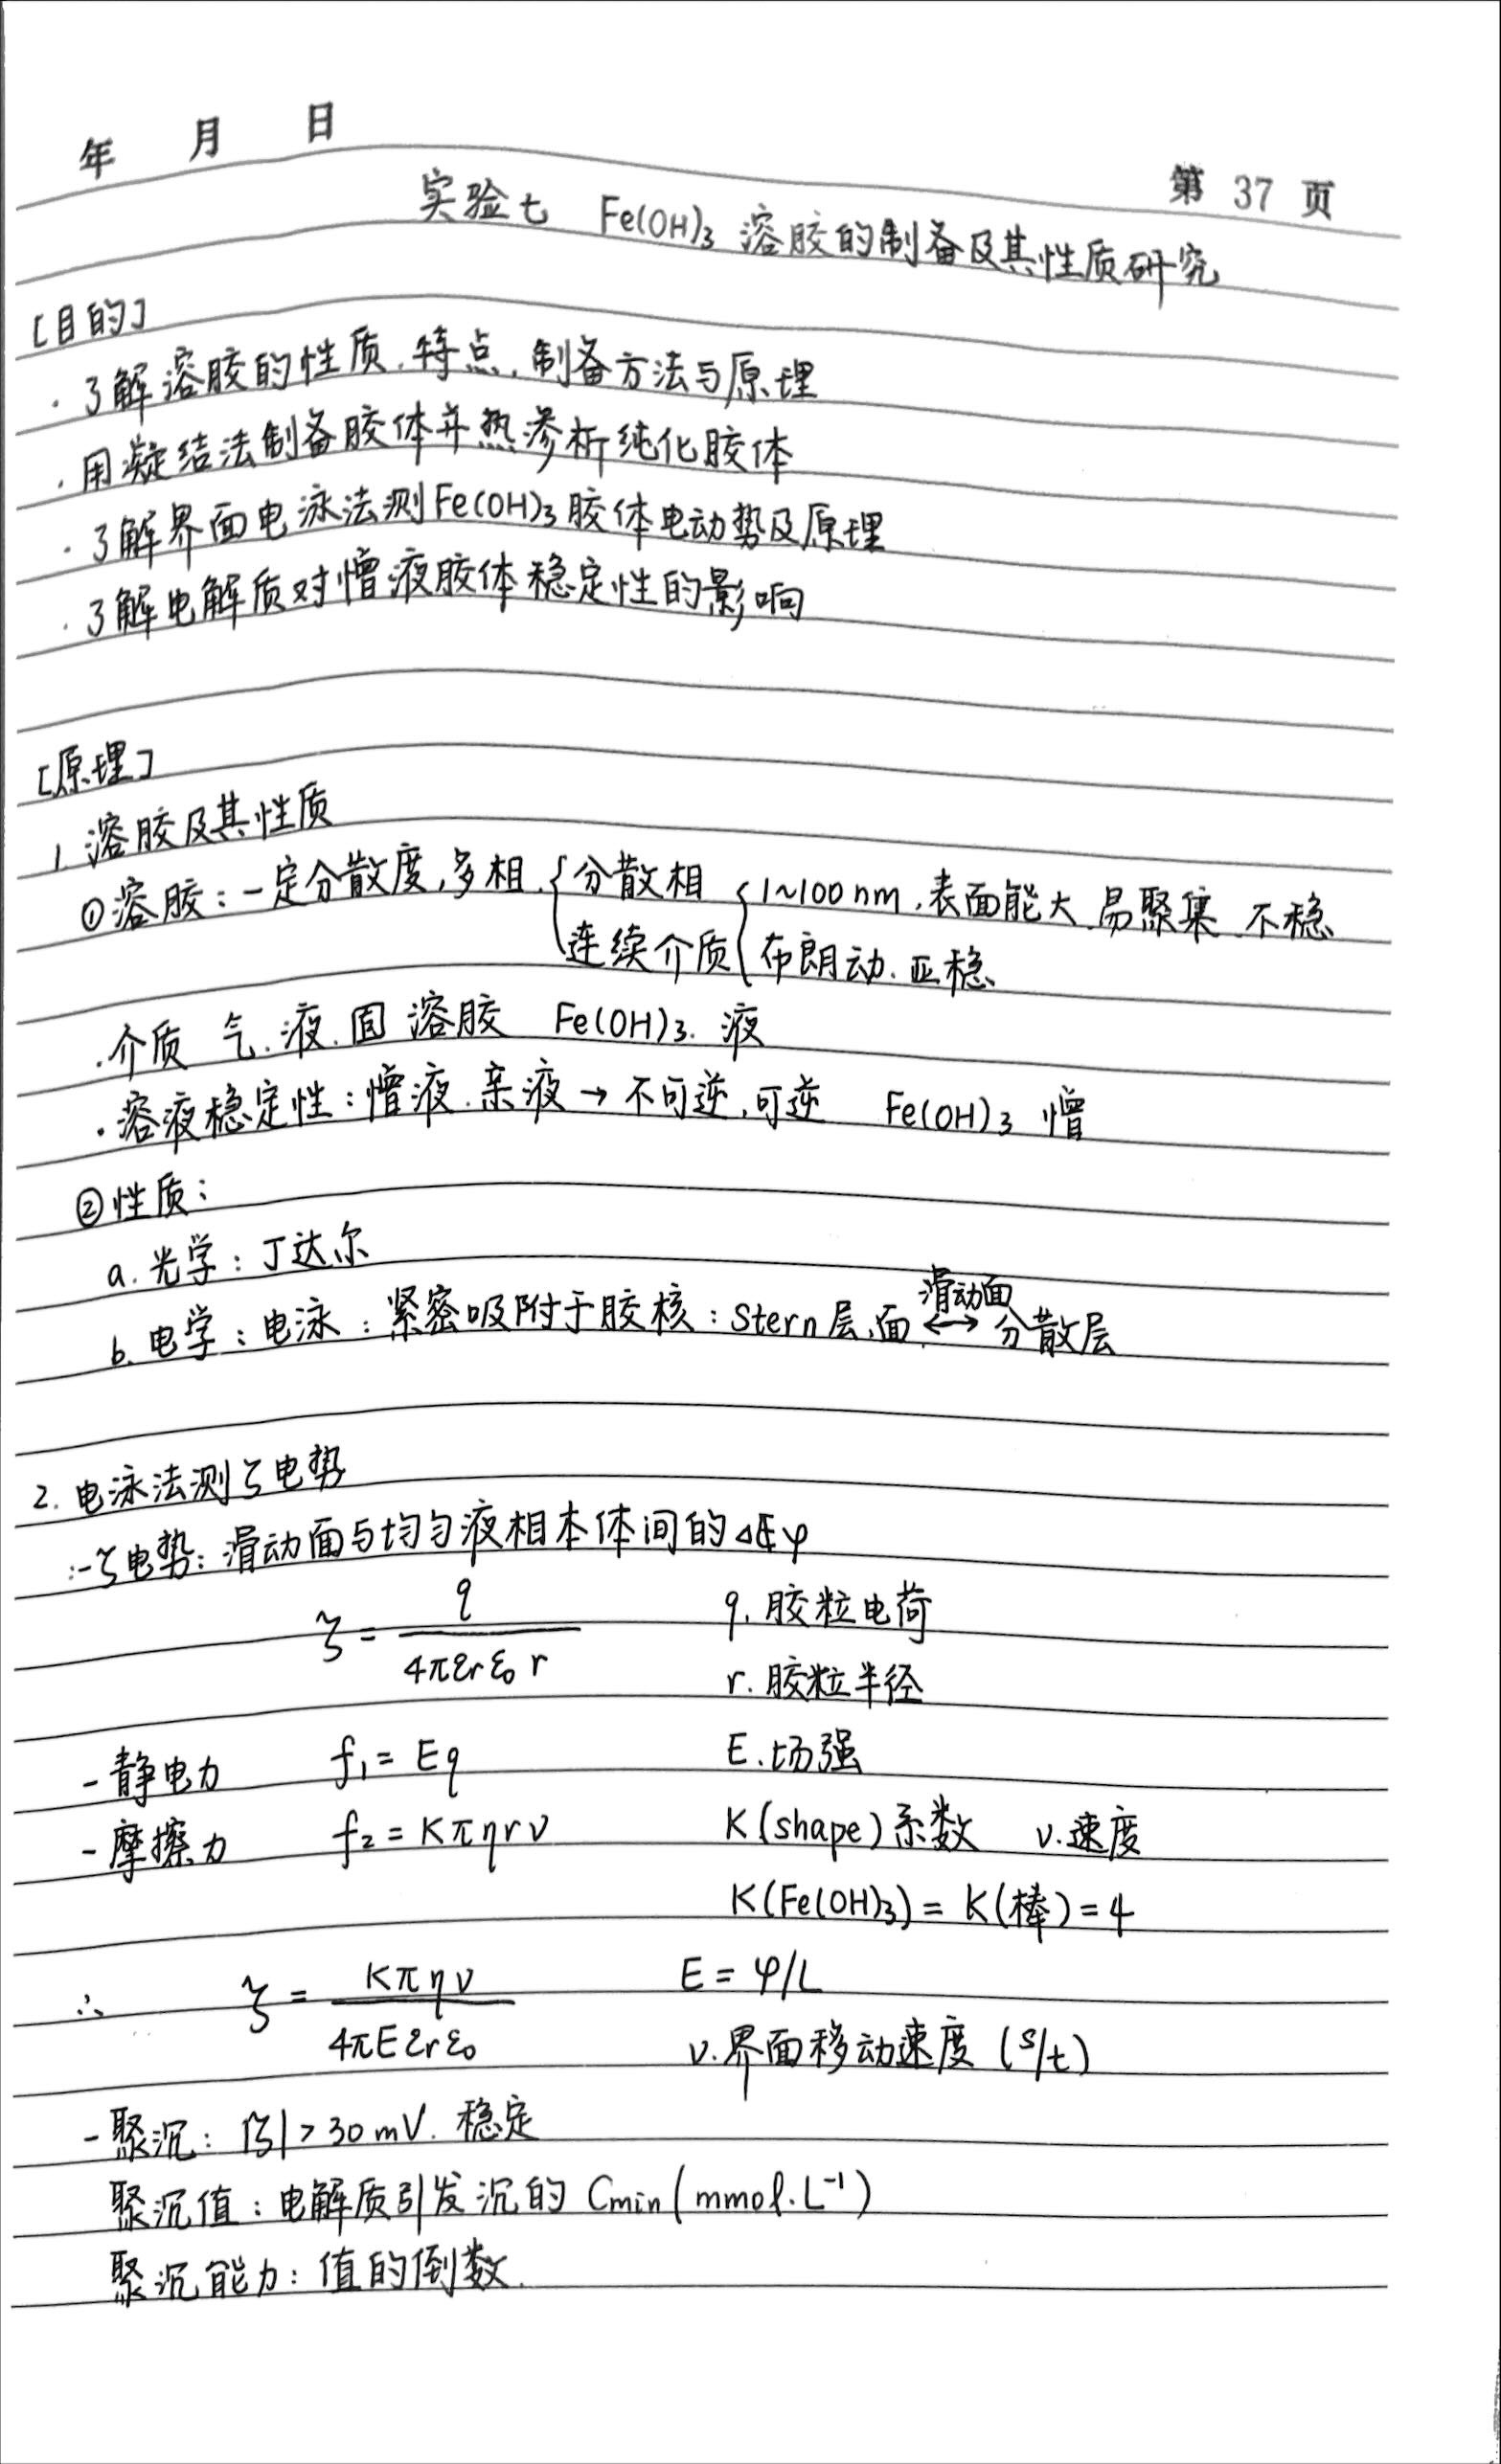 年 月 日
第 37 页
实验七 Fe(OH)₃ 溶胶的制备及其性质研究
[目的]
· 了解溶胶的性质、特点、制备方法与原理
· 用凝结法制备胶体并热渗析纯化胶体
· 了解界面电泳法测Fe(OH)₃胶体电动势及原理
· 了解电解质对憎液胶体稳定性的影响
[原理]
1. 溶胶及其性质
①溶胶:一定分散度,多相. { 分散相 { 1~100nm,表面能大、易聚集、不稳
连续介质 布朗动. 亚稳
· 介质 气.液.固 溶胶 Fe(OH)₃. 液
· 溶液稳定性:憎液.亲液→不可逆,可逆 Fe(OH)₃ 憎
②性质:
a. 光学:丁达尔
b. 电学:电泳:紧密吸附于胶核:Stern层、面 ⟷ 分散层
滑动面
2. 电泳法测ζ电势
- ζ电势:滑动面与均匀液相本体间的ΔEφ
ζ = q / 4πεrε₀ r q. 胶粒电荷
r. 胶粒半径
- 静电力 f₁ = Eq E. 场强
- 摩擦力 f₂ = Kπηrν K(shape)系数 ν.速度
K(Fe(OH)₃) = K(棒) = 4
∴ ζ = Kπην / 4πEεrε₀ E = φ/L
ν.界面移动速度 (s/t)
- 聚沉:|ζ| > 30 mV. 稳定
聚沉值:电解质引发沉的 Cmin (mmol·L⁻¹)
聚沉能力:值的倒数.